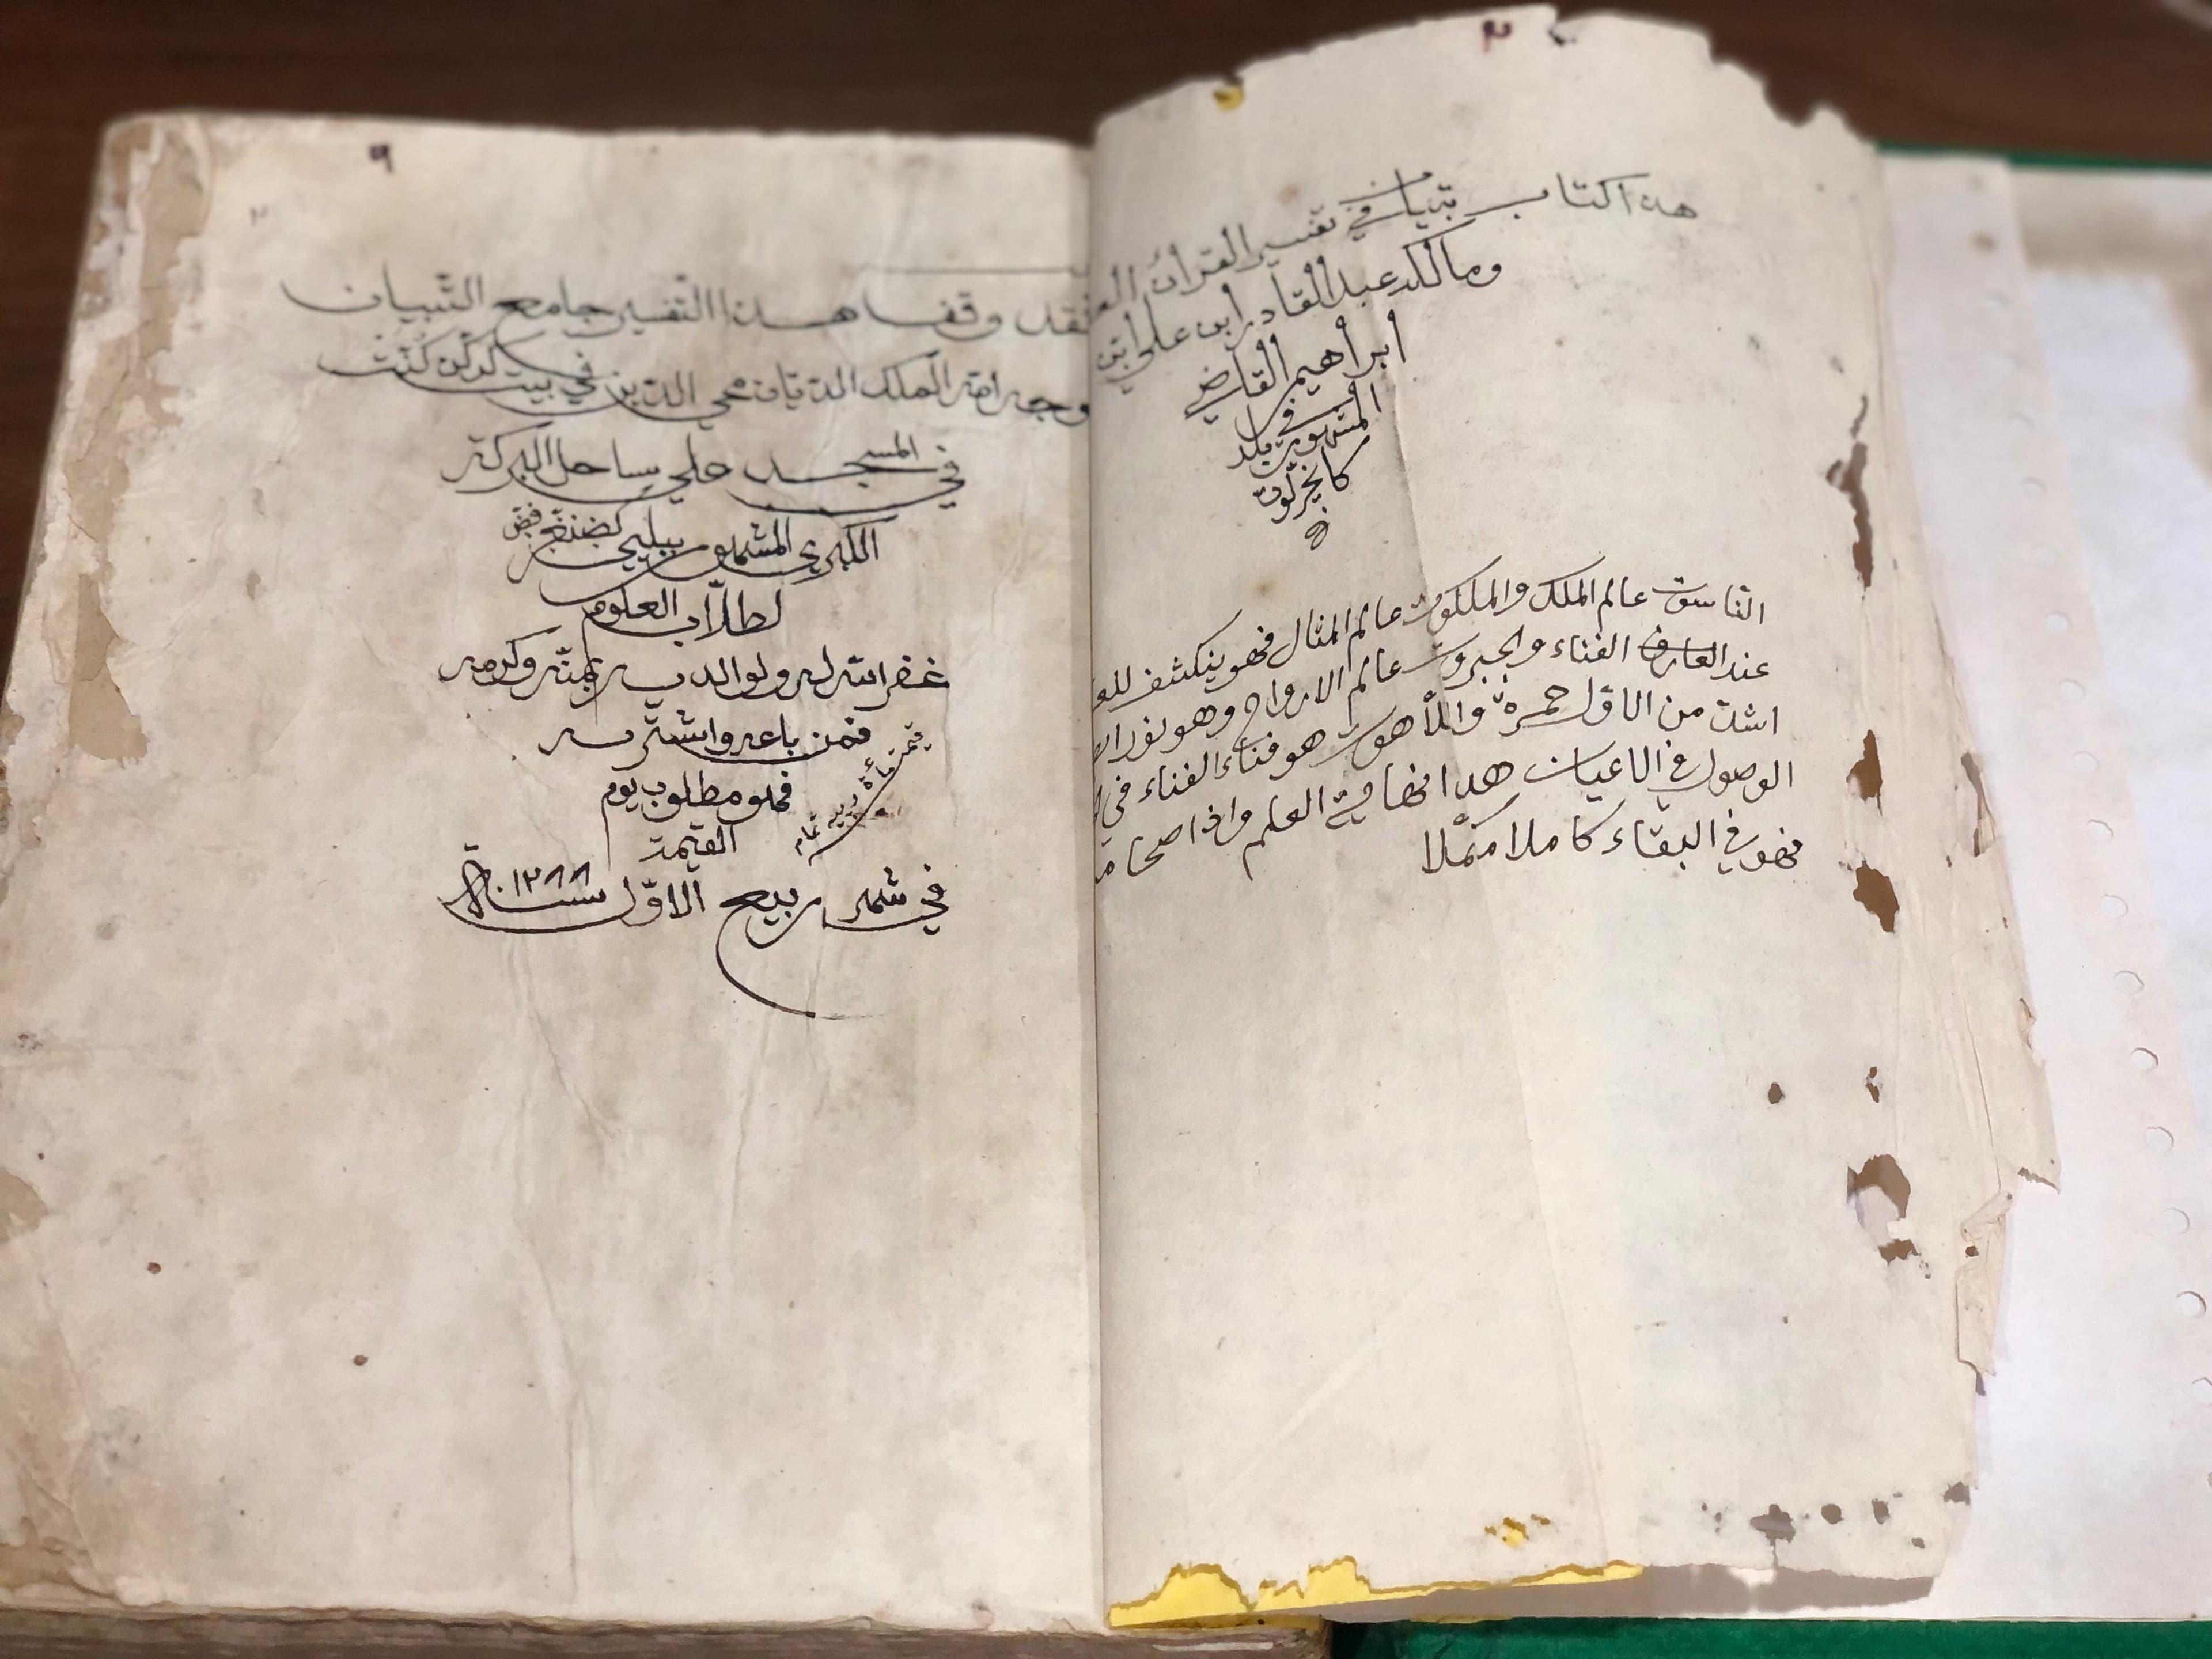 ٣
هذا كتاب تبيان في تفسير القرآن
ومالكه عبد القادر ابن علي ابن
ابراهيم القاضي
المشهور في بلد
الناسوت عالم الملك والملكوت عالم المثال فهو ينكشف
عند العارف الفناء والجبروت عالم الارواح وهو نور
اشد من الاوّل حمرة واللاهوت هو فناء الفناء في
الوصول في الاعيان هذا نهاية العلم واذا صحا
فهو في البقاء كاملا مكمّلا
٩
فقد وقف هذا التفسير جامع التبيان
وجه الله الملك الديان محي الدين في بيت
في المسجد علي ساحل البركة
الكبري المشهور
لطلّاب العلوم
غفر الله له ولوالديه بمنّه وكرمه
فمن باعه واشتريه
فهو مطلوب يوم
القيمة
في شهر ربيع الاوّل سنة ١٢٨٨